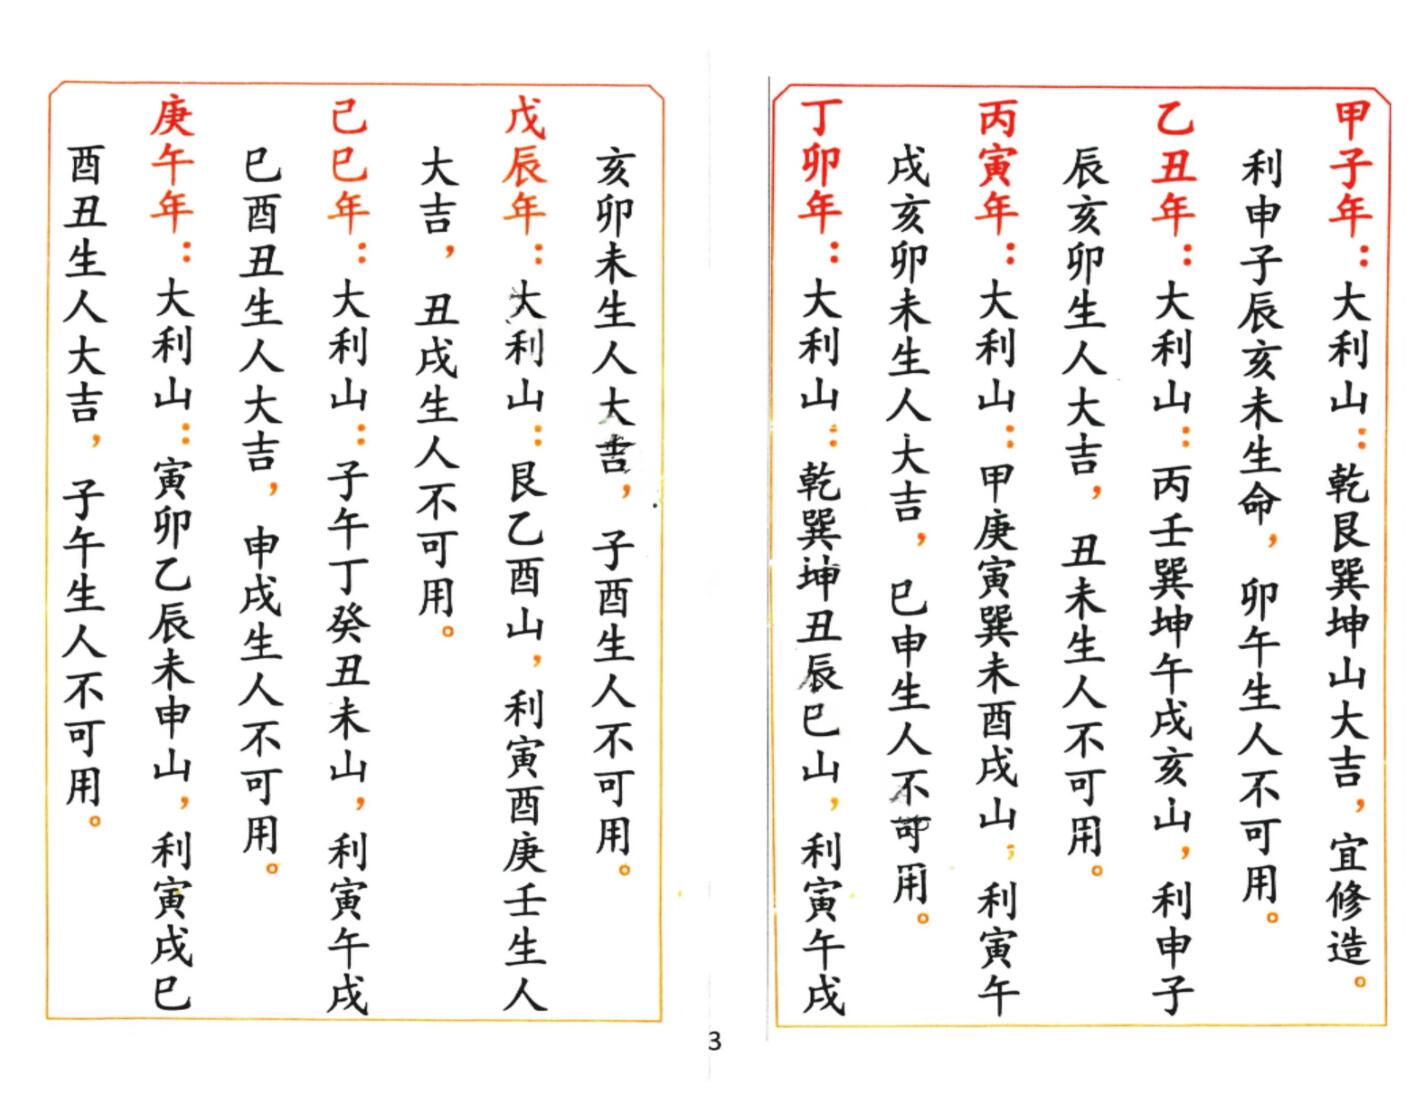 甲子年：大利山：乾艮巽坤山大吉，宜修造。
利申子辰亥未生命，卯午生人不可用。
乙丑年：大利山：丙壬巽坤午戌亥山，利申子
辰亥卯生人大吉，丑未生人不可用。
丙寅年：大利山：甲庚寅巽未酉戌山，利寅午
戌亥卯未生人大吉，巳申生人不可用。
丁卯年：大利山：乾巽坤丑辰巳山，利寅午戌
亥卯未生人大吉，子酉生人不可用。
戊辰年：大利山：艮乙酉山，利寅酉庚壬生人
大吉，丑戌生人不可用。
己巳年：大利山：子午丁癸丑未山，利寅午戌
巳酉丑生人大吉，申戌生人不可用。
庚午年：大利山：寅卯乙辰未申山，利寅戌巳
酉丑生人大吉，子午生人不可用。
3